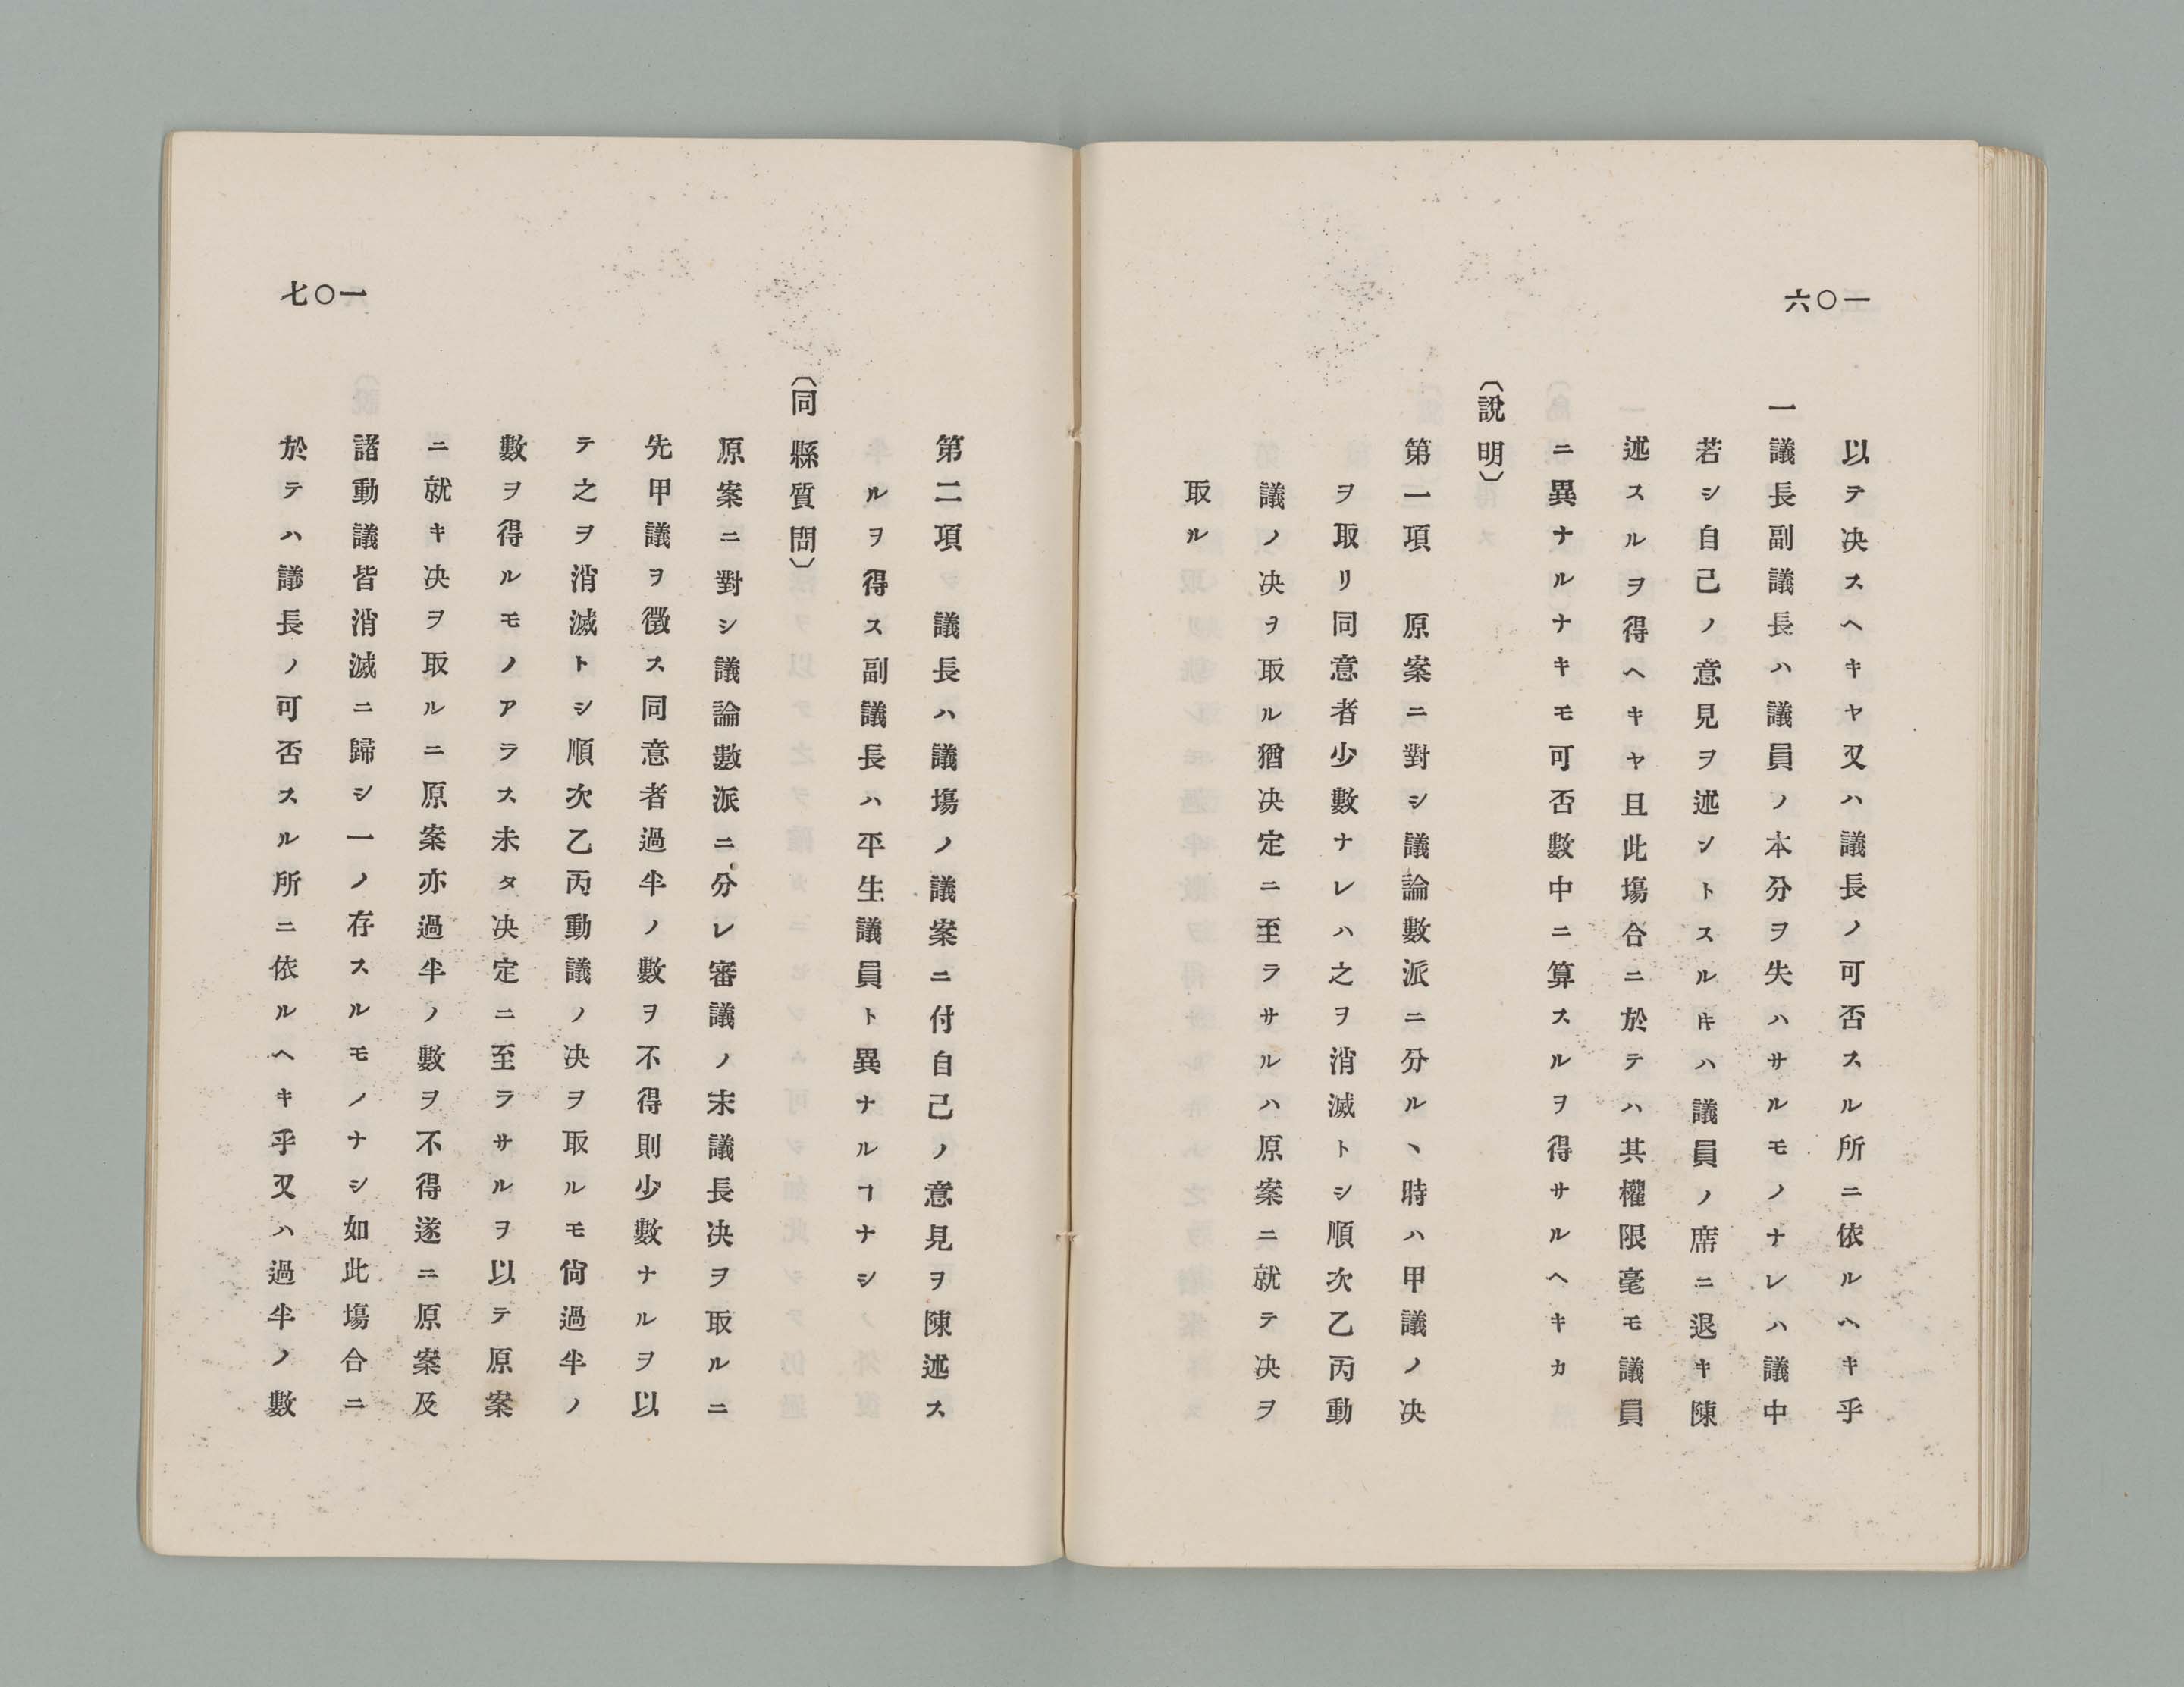 六〇一
以テ决スヘキヤ又ハ議長ノ可否スル所ニ依ルヘキ乎
一議長副議長ハ議員ノ本分ヲ失ハサルモノナレハ議中
若シ自己ノ意見ヲ述シトスルキハ議員ノ席ニ退キ陳
述スルヲ得ヘキヤ且此塲合ニ於テハ其權限毫モ議員
ニ異ナルナキモ可否數中ニ算スルヲ得サルヘキカ
（說明）
第一項　原案ニ對シ議論數派ニ分ルヽ時ハ甲議ノ决
ヲ取リ同意者少數ナレハ之ヲ消滅トシ順次乙丙動
議ノ决ヲ取ル猶决定ニ至ラサルハ原案ニ就テ决ヲ
取ル
七〇一
第二項　議長ハ議塲ノ議案ニ付自己ノ意見ヲ陳述ス
ルヲ得ス副議長ハ平生議員ト異ナルヿナシ
（同縣質問）
原案ニ對シ議論數派ニ分レ審議ノ末議長决ヲ取ルニ
先甲議ヲ徵ス同意者過半ノ數ヲ不得則少數ナルヲ以
テ之ヲ消滅トシ順次乙丙動議ノ决ヲ取ルモ尙過半ノ
數ヲ得ルモノアラス未タ决定ニ至ラサルヲ以テ原案
ニ就キ决ヲ取ルニ原案亦過半ノ數ヲ不得遂ニ原案及
諸動議皆消滅ニ歸シ一ノ存スルモノナシ如此塲合ニ
於テハ議長ノ可否スル所ニ依ルヘキ乎又ハ過半ノ數